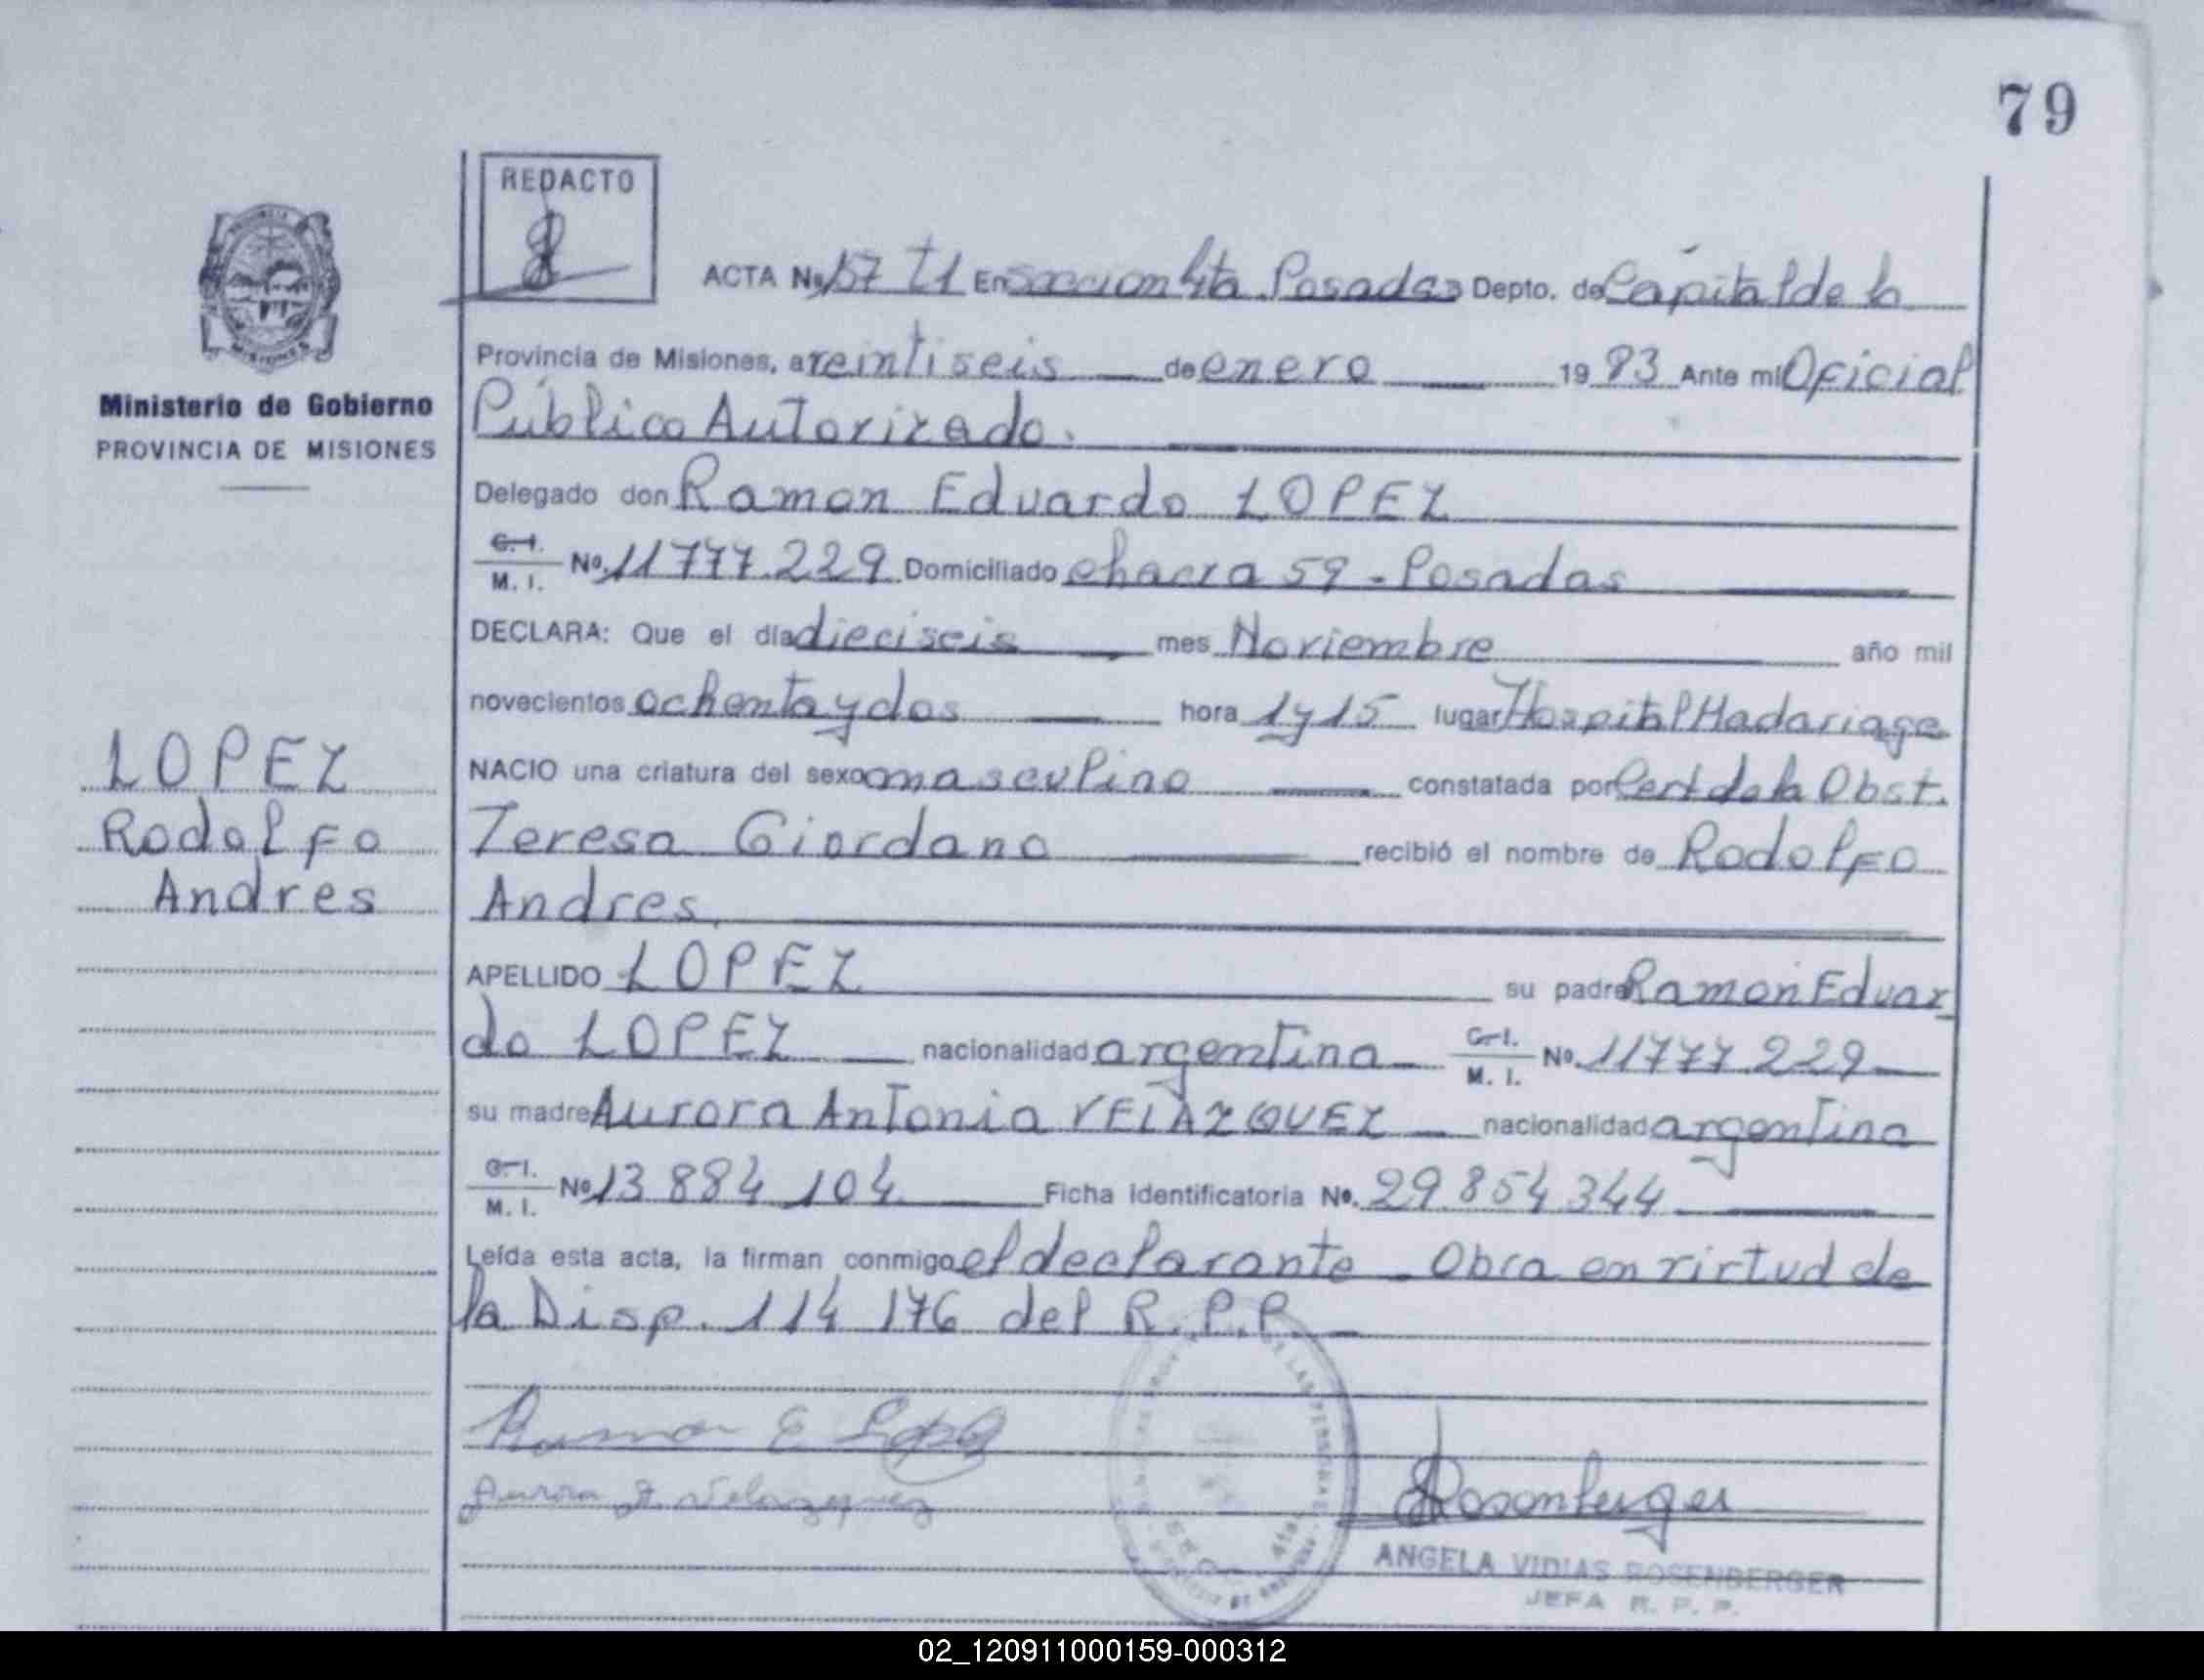 79
REDACTO
ACTA Nº 157 t1 En Seccion 4ta Posadas Depto. de Capital de la
Provincia de Misiones, a veintiseis de enero 1983 Ante mi Oficial
Ministerio de Gobierno
PROVINCIA DE MISIONES
Público Autorizado.
Delegado don Ramon Eduardo LOPEZ
C. I. M. I. Nº 11777.229 Domiciliado chacra 59 - Posadas
DECLARA: Que el día dieciseis mes Noviembre año mil
novecientos ochenta y dos hora 1 y 15 lugar Hospital Madariaga
NACIO una criatura del sexo masculino constatada por Cert de la Obst.
Teresa Giordano recibió el nombre de Rodolfo
Andres.
LOPEZ
Rodolfo
Andres
APELLIDO LOPEZ su padre Ramon Eduar
do LOPEZ nacionalidad argentina C. I. M. I. Nº 11777.229
su madre Aurora Antonia VELAZQUEZ nacionalidad argentina
C. I. M. I. Nº 13 884 104 Ficha identificatoria Nº. 29 854 344
Leída esta acta, la firman conmigo el declarante - Obra en virtud de
la Disp. 114 176 del R.P.P.
Ramon E Lopez
Aurora A. Velazquez
Rosenberger
ANGELA VIDIAS ROSENBERGER
JEFA R. P. P.
02_120911000159-000312